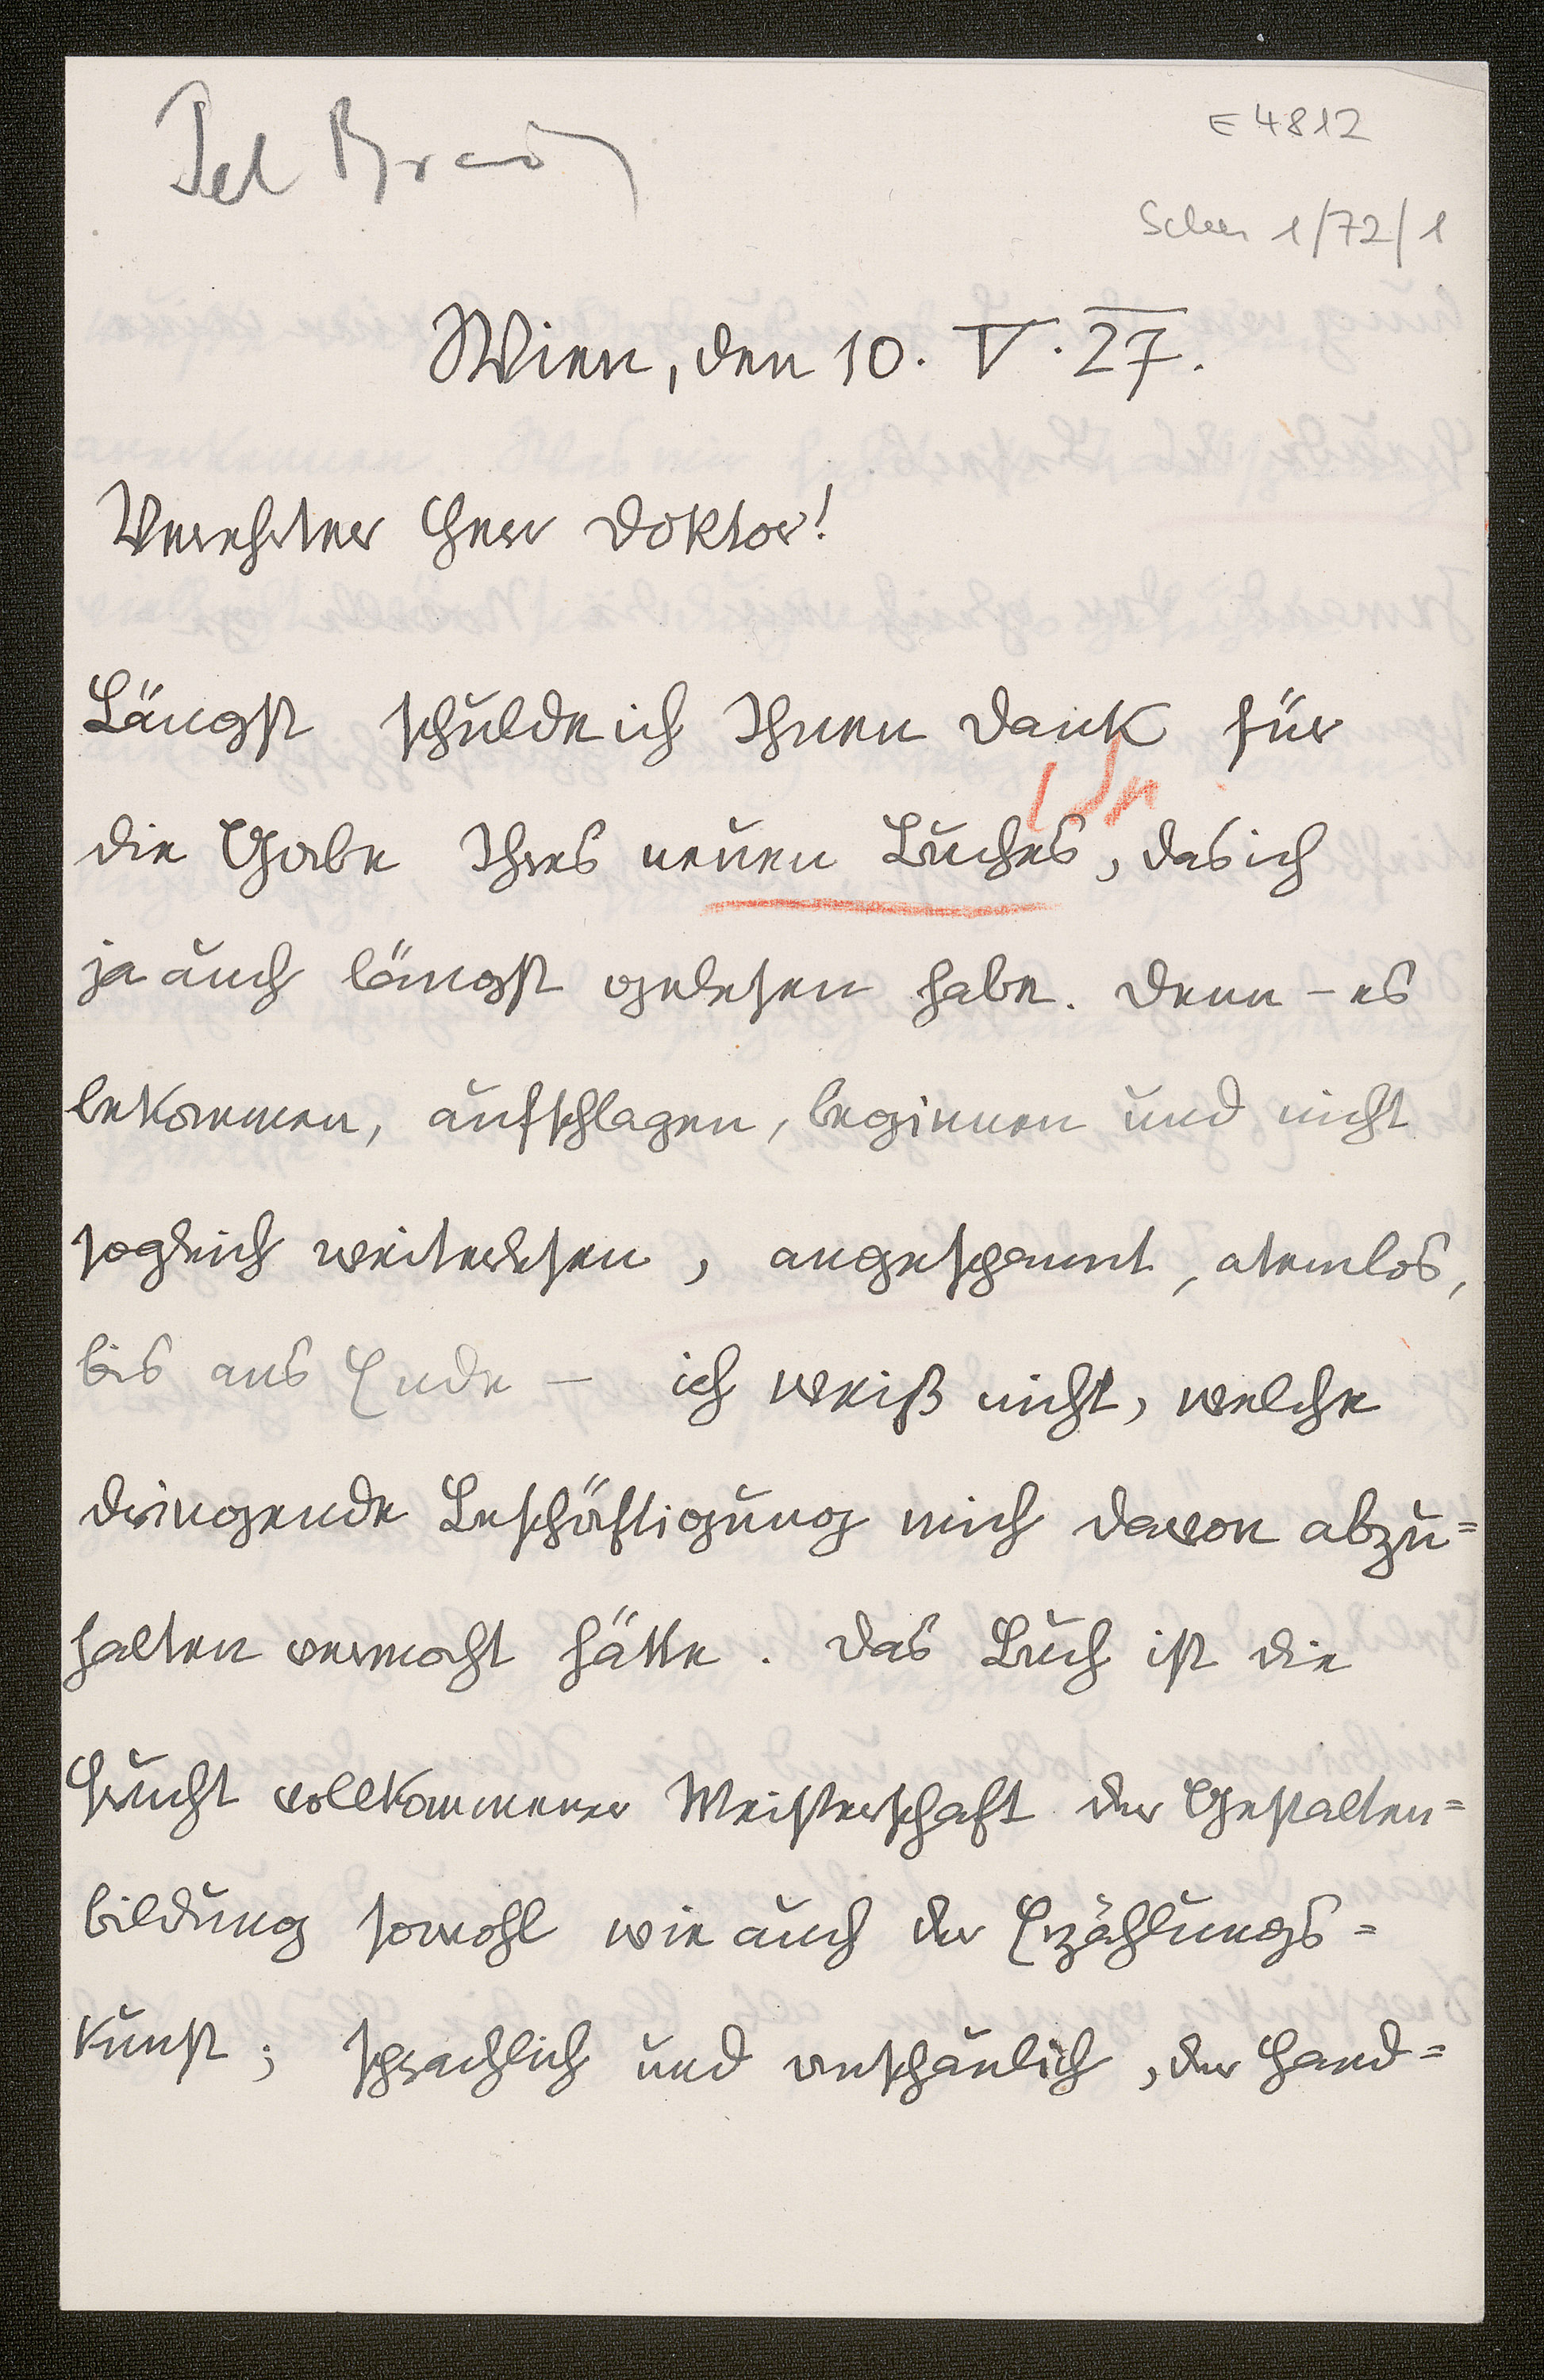 E 4812
1/72/1
Wien, den 10. V. 27.
Verehrter Herr Doktor!
Längst schulde ich Ihnen Dank für
die Gabe Ihres neuen Buches, das ich
ja auch längst gelesen habe. Denn – es
bekommen, aufschlagen, beginnen und nicht
sogleich weiterlesen, angespannt, atemlos,
bis ans Ende – ich weiß nicht, welche
dringende Beschäftigung mich davon abzu=
halten vermocht hätte. Das Buch ist die
Frucht vollkommener Meisterschaft der Gestalten=
bildung sowohl wie auch der Erzählungs=
kunst; sprachlich und anschaulich, der Hand=